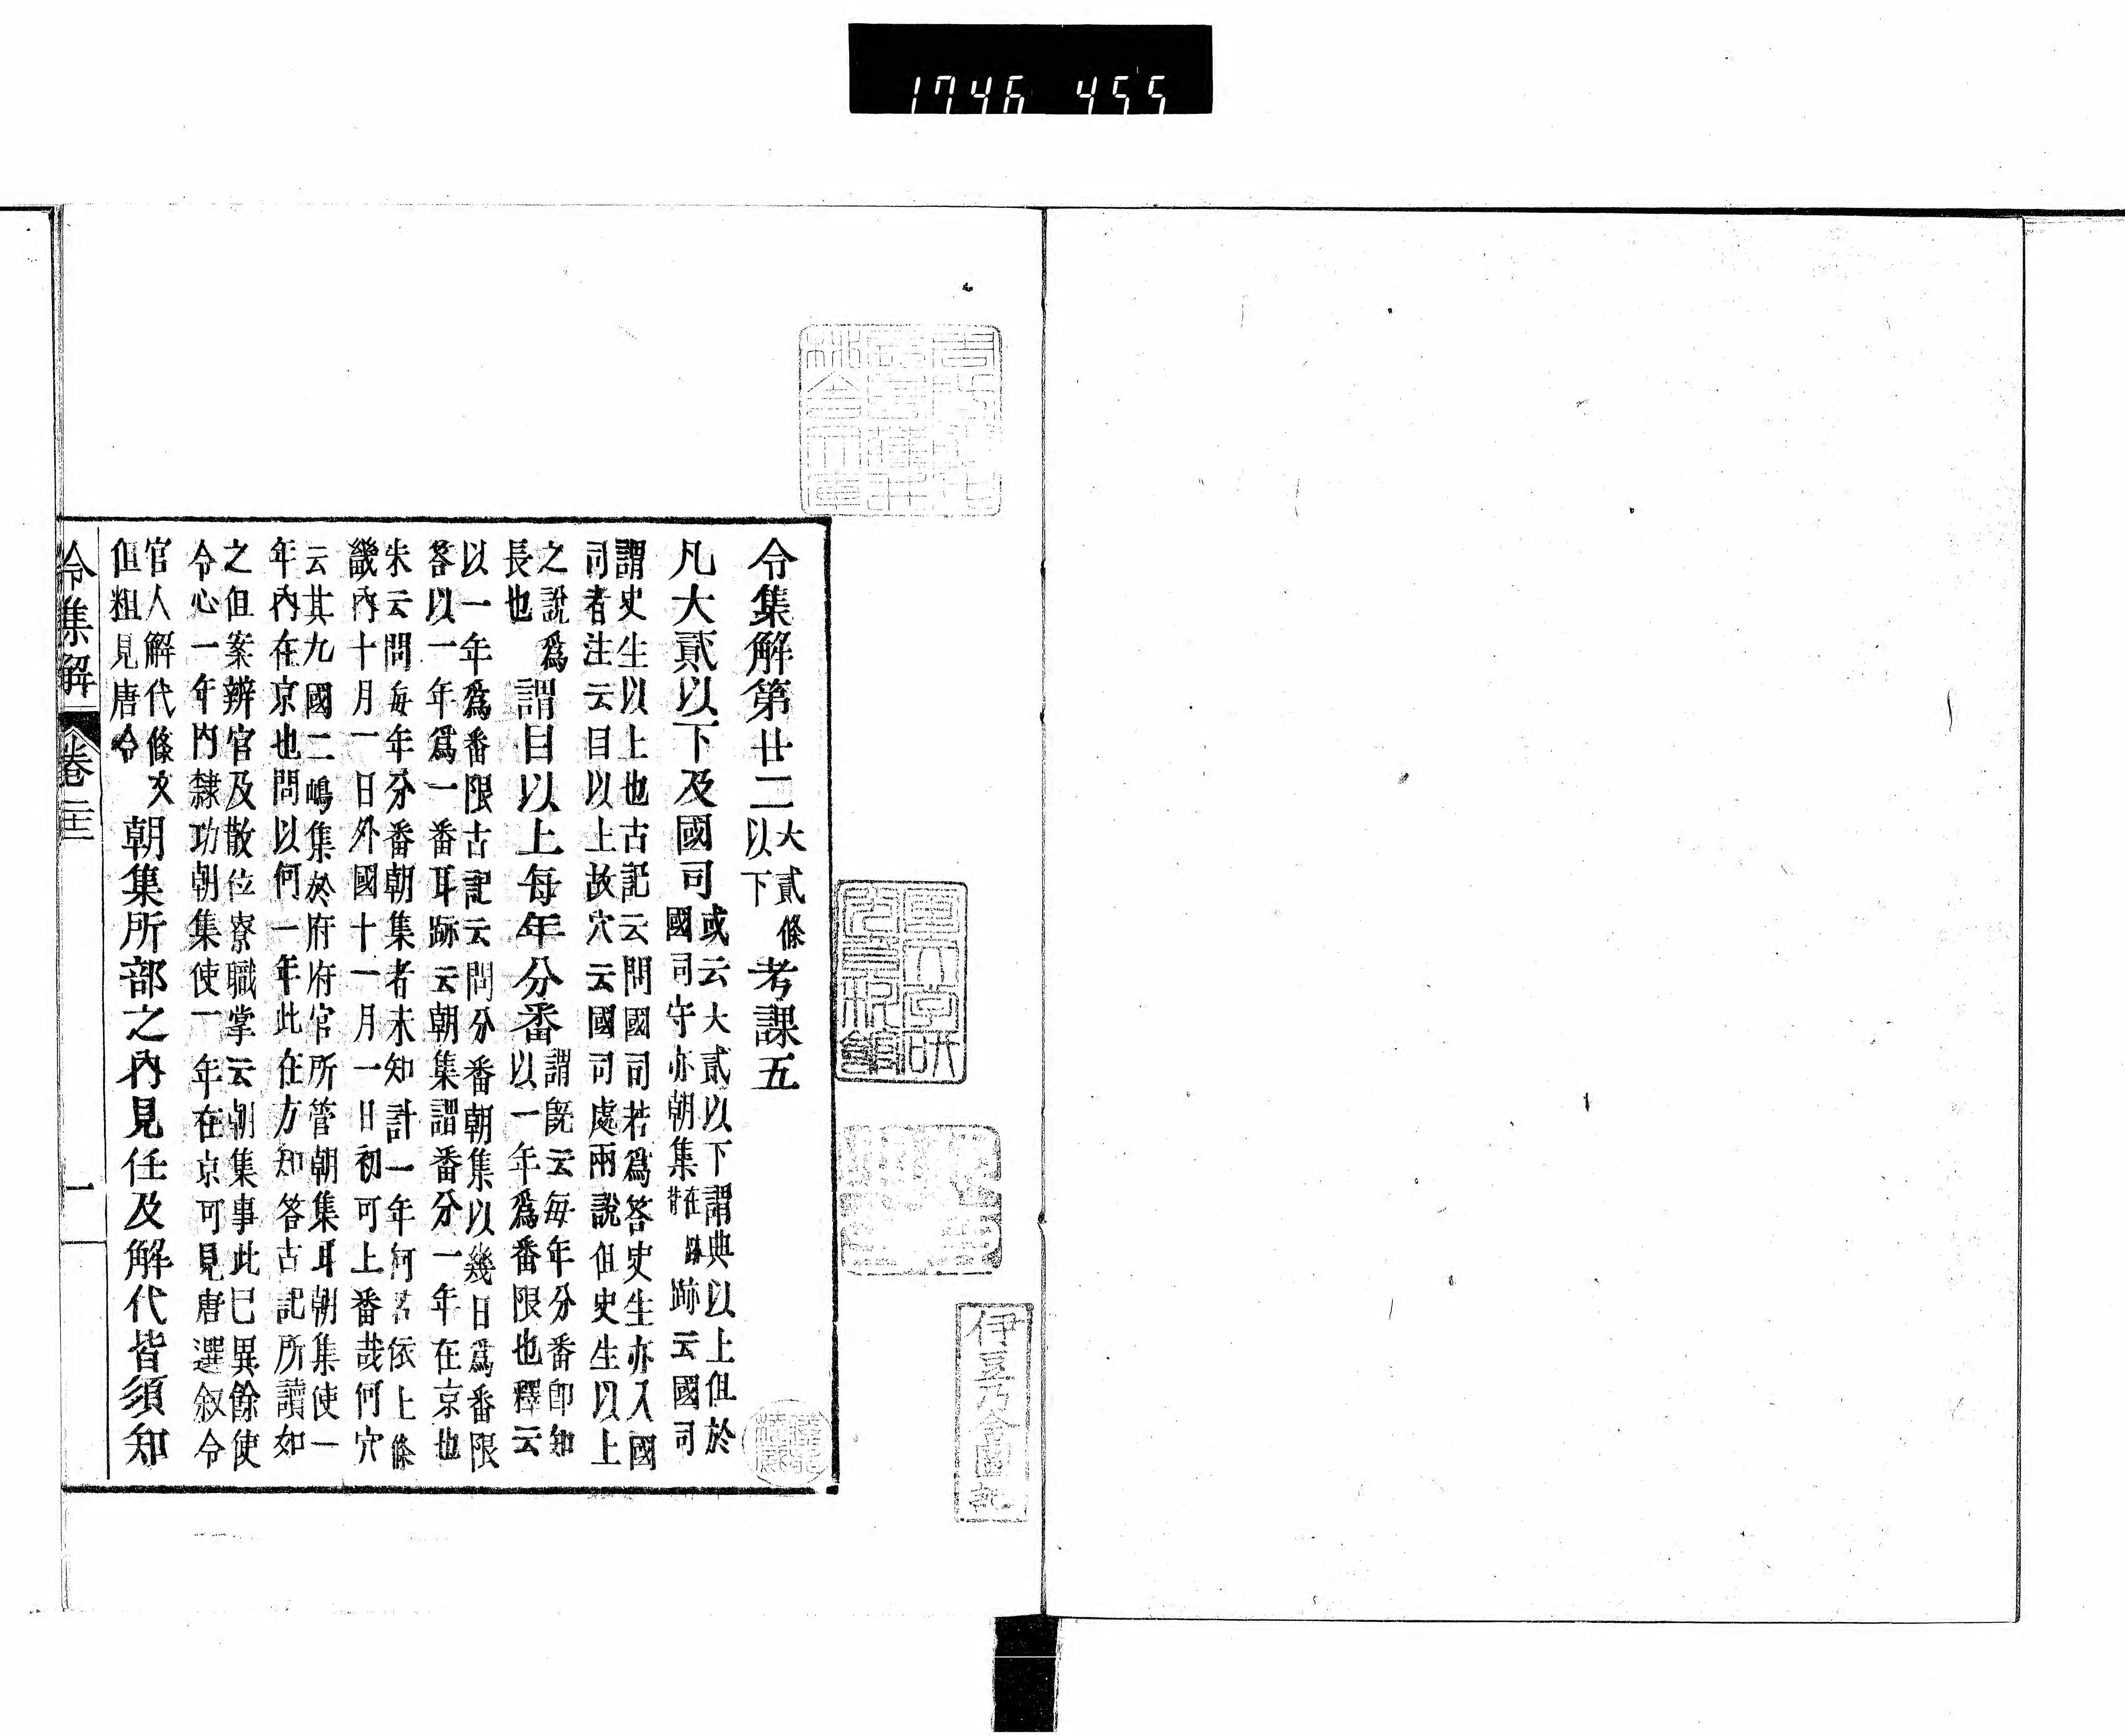 1746 455
令集解第廿二 大貳條以下 考課五
凡大貳以下及國司 或云大貳以下謂典以上但於
國司守亦朝集 跡云國司
謂史生以上也古記云問國司若爲答史生亦入國
司者注云目以上故穴云國司處兩說但史生以上
之說爲
長也 謂目以上每年分番 謂旣云每年分番卽知
以一年爲番限也釋云
以一年爲番限古記云問分番朝集以幾日爲番限
答以一年爲一番耳跡云朝集謂番分一年在京也
朱云問每年分番朝集者未知計一年何若依上條
畿內十月一日外國十一月一日初可上番哉何穴
云其九國二嶋集於府府官所管朝集耳朝集使一
年內在京也問以何一年此在方知答古記所讀如
之但案辨官及散位寮職掌云朝集事此已異餘使
令心一年內隸功朝集使一年在京可見唐選叙令
官人解代條文
但粗見唐令 朝集所部之內見任及解代皆須知
令集解 卷二十二 一
伊豆乃今園記